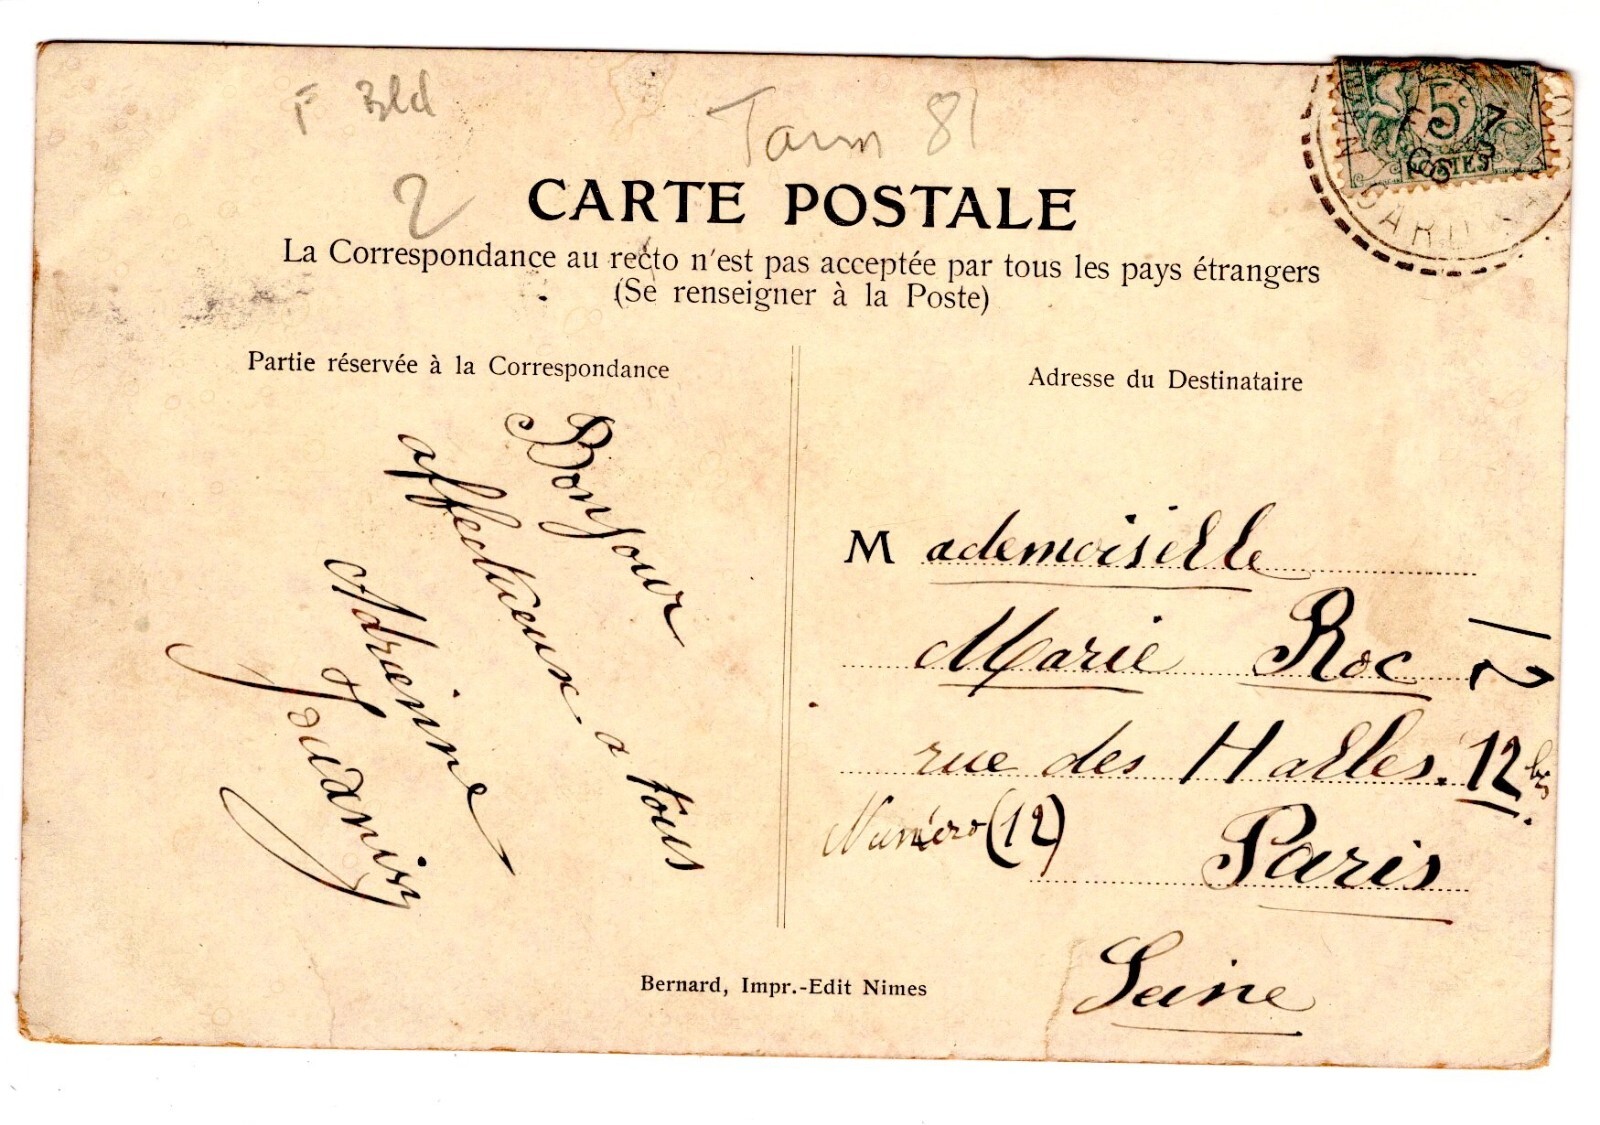 F Bld
Tarn 81
2
5c
POSTES
GARD
CARTE POSTALE
La Correspondance au recto n'est pas acceptée par tous les pays étrangers
(Se renseigner à la Poste)
Partie réservée à la Correspondance
Bonjour
affectueux a tous
Adrienne
Adresse du Destinataire
Mademoiselle
Marie Roc
12
rue des Halles. 12 bis
Numéro (12)
Paris
Seine
Bernard, Impr.-Edit Nimes